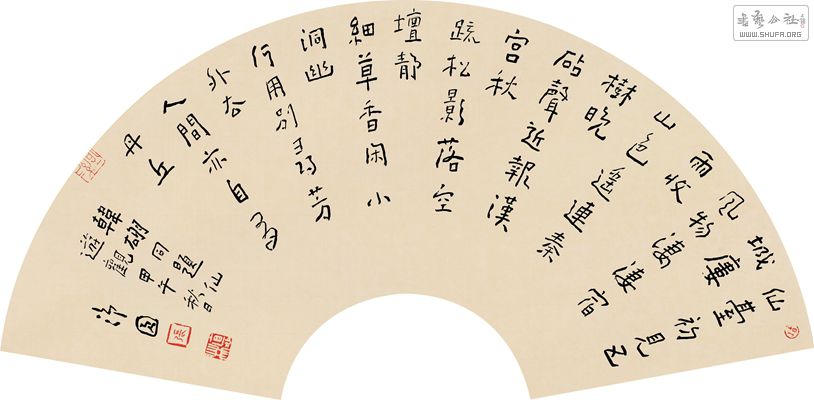 仙臺初見五
城廔
風物淒淒宿
雨收
山色遙連秦
樹晚
砧聲近報漢
宮秋
疏松影落空
壇靜
細草香閑小
洞幽
行用別尋芳
外去
人間亦自有
丹丘
韓翃同題仙
遊觀甲午秋日
书艺公社
WWW.SHUFA.ORG